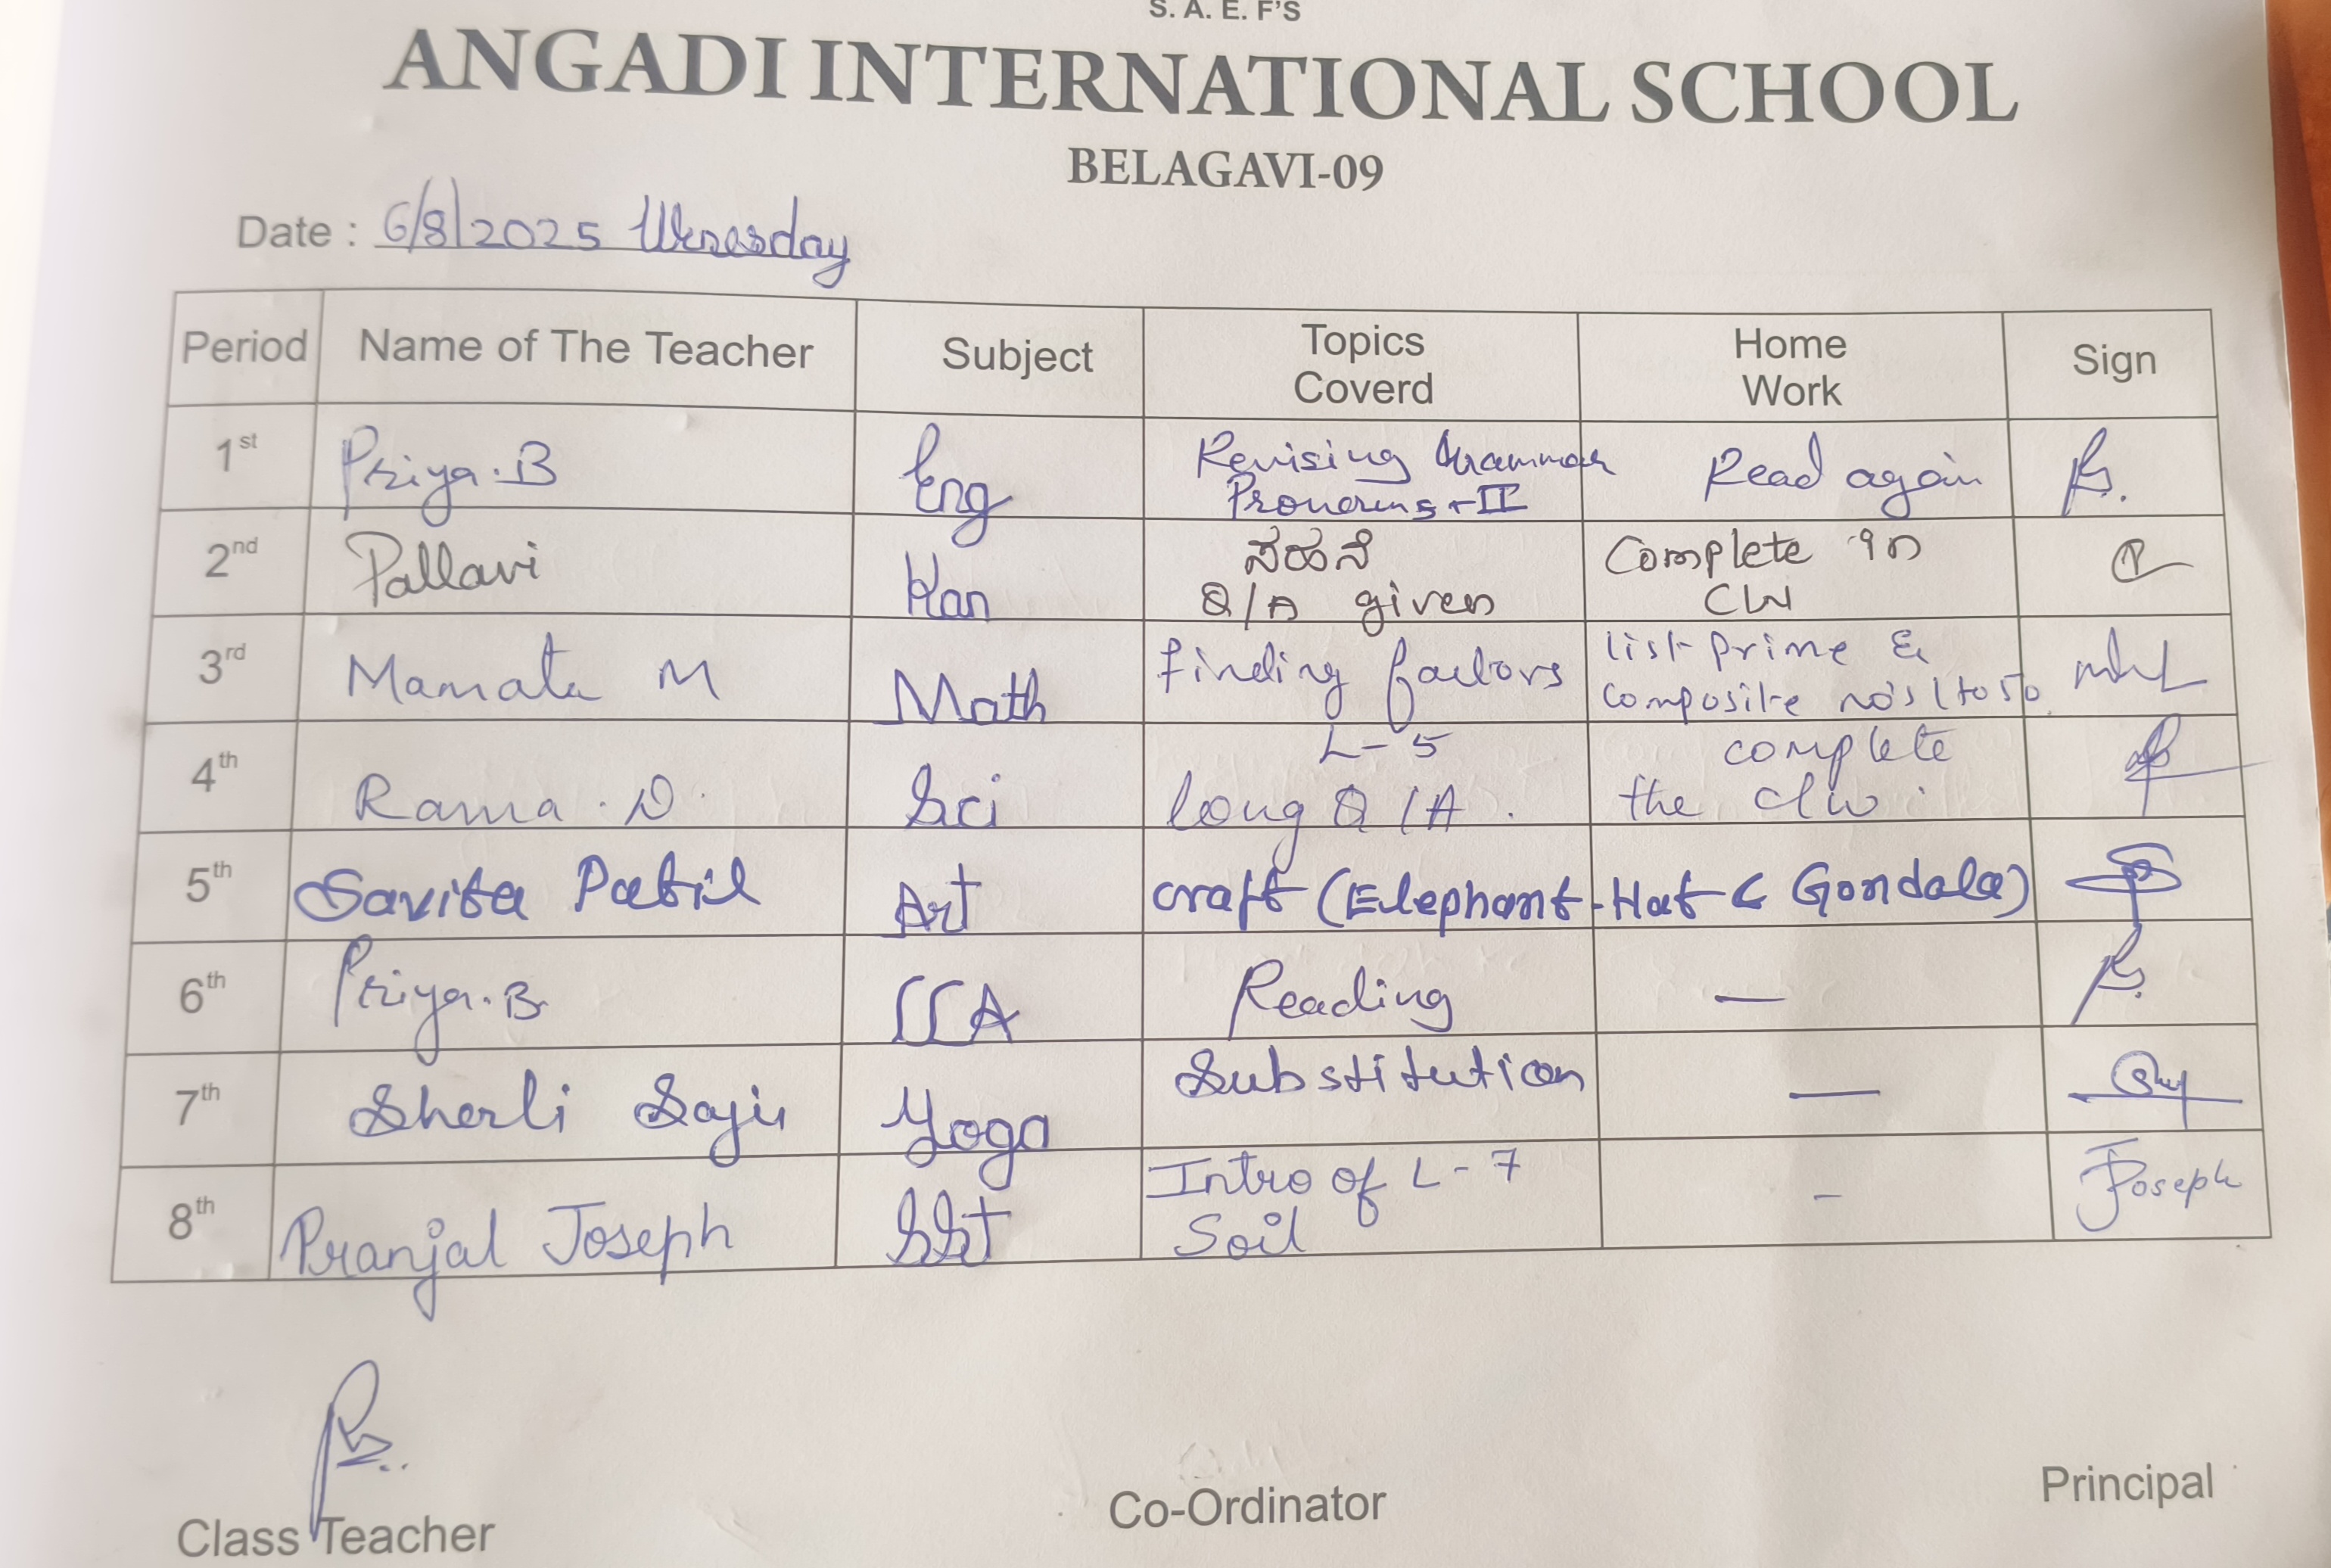 S. A. E. F'S
ANGADI INTERNATIONAL SCHOOL
BELAGAVI-09
Date : 6/8/2025 Wenesday
Period Name of The Teacher Subject Topics Coverd Home Work Sign
1st Priya.B Eng Revising Grammar Pronouns-II Read again
2nd Pallavi Kan ಸಹನೆ Q/A given Complete in CW
3rd Mamata M Math finding factors list prime & composite no's 1 to 50
4th Rama . D. Sci L-5 long Q/A. complete the c/w.
5th Savita Patil Art craft (Elephant-Hat & Gondala)
6th Priya.B CCA Reading —
7th Sherli Saju Yoga Substitution —
8th Pranjal Joseph SSt Intro of L-7 Soil - Joseph
Class Teacher Co-Ordinator Principal